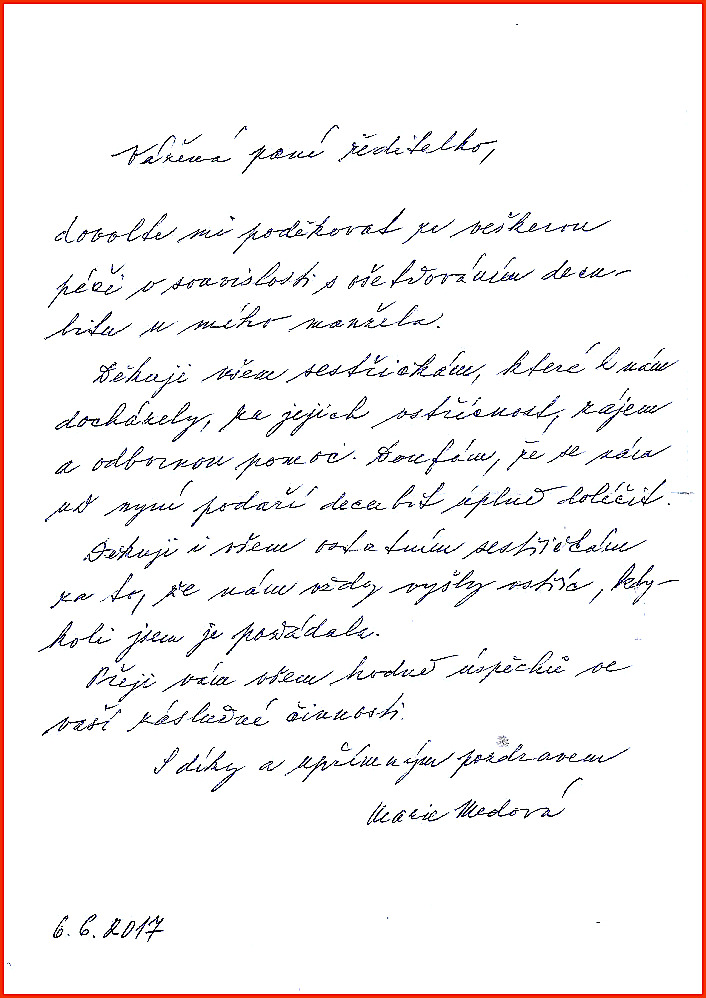 Vážená paní ředitelko,
dovolte mi poděkovat za veškerou
péči v souvislosti s ošetřováním decu-
bitu u mého manžela.
Děkuji všem sestřičkám, které k nám
docházely, za jejich vstřícnost, zájem
a odbornou pomoc. Doufám, že se nám
už nyní podaří decubit úplně doléčit.
Děkuji i všem ostatním sestřičkám
za to, že nám vždy vyšly vstříc, kdy-
koli jsem je požádala.
Přeji vám všem hodně úspěchů ve
vaší záslužné činnosti.
S díky a upřímným pozdravem
Marie Medová
6.6.2017